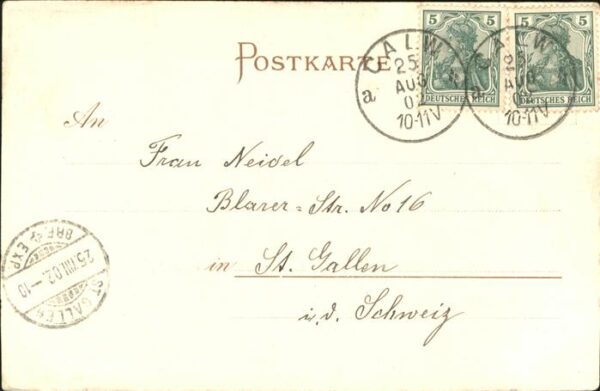 POSTKARTE
5 5 5 5
DEUTSCHES REICH DEUTSCHES REICH
CALW
25
AUG
02
10-11V
a
CALW
25
AUG
10-11V
a
An
Frau Neidel
Blarer=Str. No 16
in St. Gallen
i. d. Schweiz
ST. GALLEN
25.VIII.02.-10
BRF. EXP.